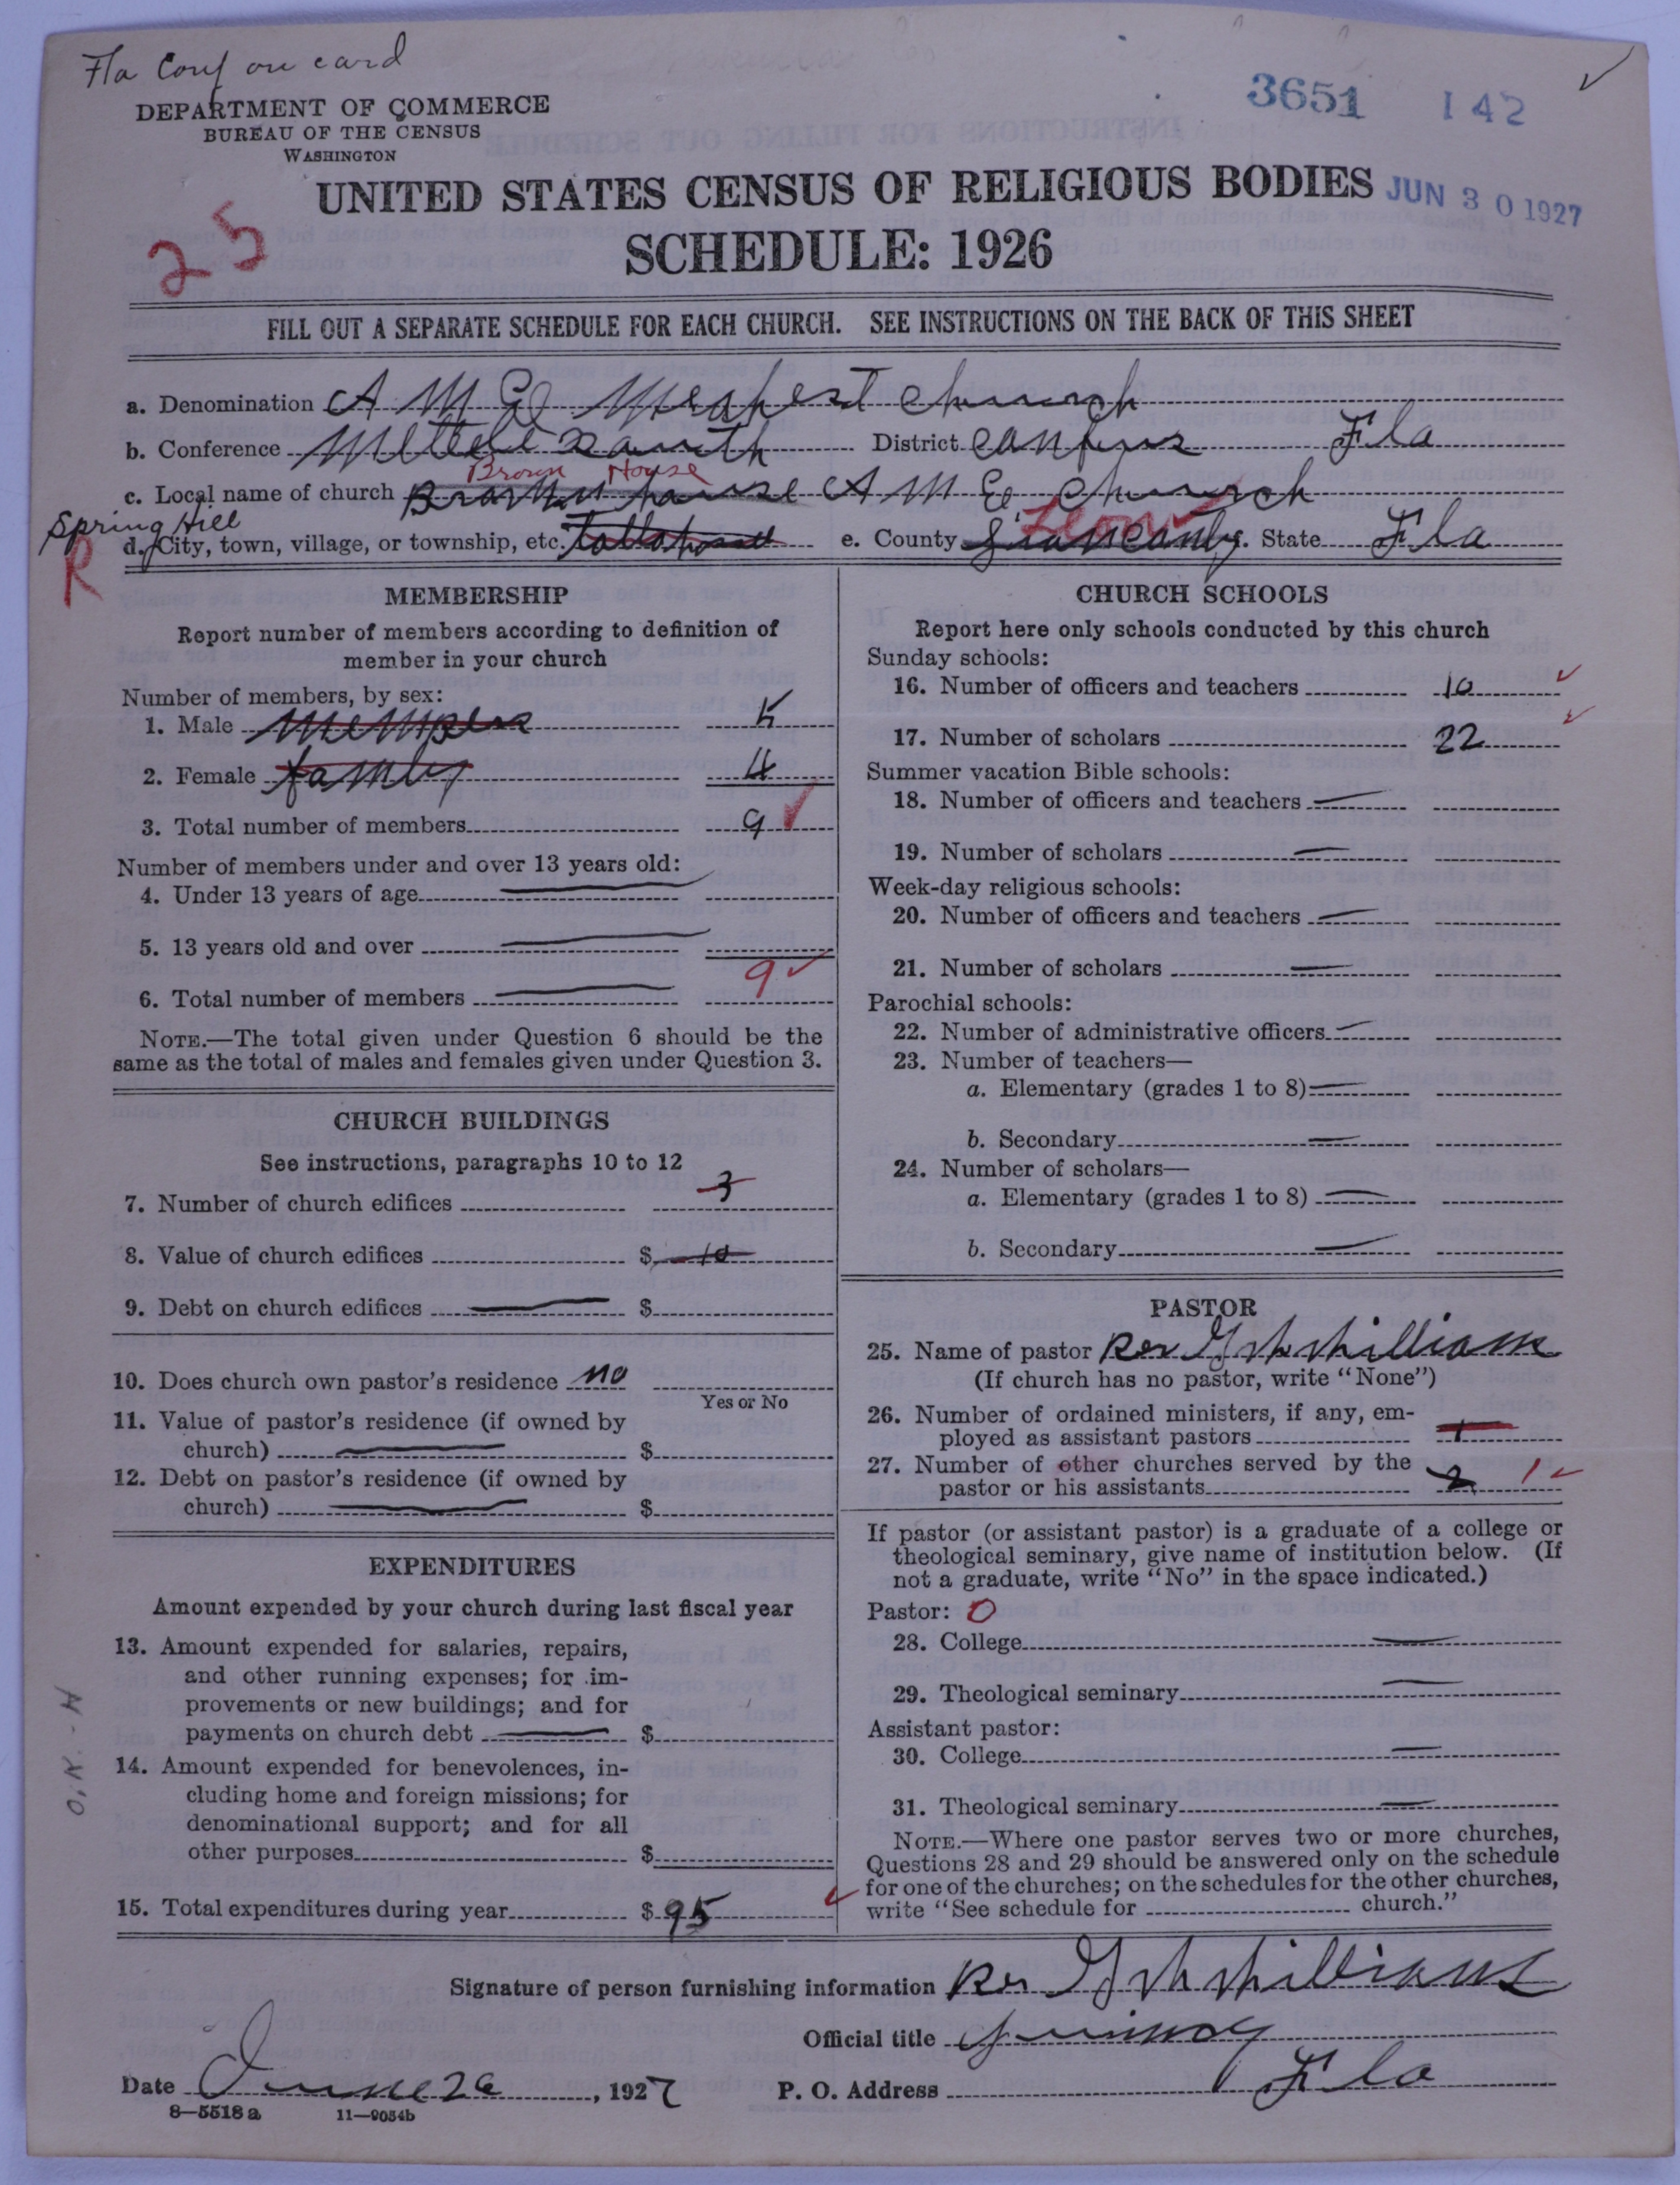 Fla Conf on card
3651 142
DEPARTMENT OF COMMERCE
BUREAU OF THE CENSUS
WASHINGTON
UNITED STATES CENSUS OF RELIGIOUS BODIES
JUN 30 1927
25
SCHEDULE: 1926
FILL OUT A SEPARATE SCHEDULE FOR EACH CHURCH. SEE INSTRUCTIONS ON THE BACK OF THIS SHEET
a. Denomination A M E church
b. Conference District Fla
Brown House
c. Local name of church house A M E church
Spring Hill Leon
d. City, town, village, or township, etc. e. County State Fla
R
MEMBERSHIP
Report number of members according to definition of
member in your church
Number of members, by sex:
1. Male 5
2. Female family 4
3. Total number of members 9
Number of members under and over 13 years old:
4. Under 13 years of age
5. 13 years old and over
6. Total number of members 9
NOTE.—The total given under Question 6 should be the
same as the total of males and females given under Question 3.
CHURCH BUILDINGS
See instructions, paragraphs 10 to 12
7. Number of church edifices 3
8. Value of church edifices $ 10
9. Debt on church edifices $
10. Does church own pastor's residence no
Yes or No
11. Value of pastor's residence (if owned by
church) $
12. Debt on pastor's residence (if owned by
church) $
EXPENDITURES
Amount expended by your church during last fiscal year
13. Amount expended for salaries, repairs,
and other running expenses; for im-
provements or new buildings; and for
payments on church debt $
14. Amount expended for benevolences, in-
cluding home and foreign missions; for
denominational support; and for all
other purposes $
15. Total expenditures during year $ 95
CHURCH SCHOOLS
Report here only schools conducted by this church
Sunday schools:
16. Number of officers and teachers 10
17. Number of scholars 22
Summer vacation Bible schools:
18. Number of officers and teachers
19. Number of scholars
Week-day religious schools:
20. Number of officers and teachers
21. Number of scholars
Parochial schools:
22. Number of administrative officers
23. Number of teachers—
a. Elementary (grades 1 to 8)
b. Secondary
24. Number of scholars—
a. Elementary (grades 1 to 8)
b. Secondary
PASTOR
25. Name of pastor Rev
(If church has no pastor, write "None")
26. Number of ordained ministers, if any, em-
ployed as assistant pastors 1
27. Number of other churches served by the
pastor or his assistants 2 1
If pastor (or assistant pastor) is a graduate of a college or
theological seminary, give name of institution below. (If
not a graduate, write "No" in the space indicated.)
Pastor: 0
28. College
29. Theological seminary
Assistant pastor:
30. College
31. Theological seminary
NOTE.—Where one pastor serves two or more churches,
Questions 28 and 29 should be answered only on the schedule
for one of the churches; on the schedules for the other churches,
write "See schedule for church."
Signature of person furnishing information
Official title
Date June 26, 1927 P. O. Address Fla
8—5518a 11—9054b